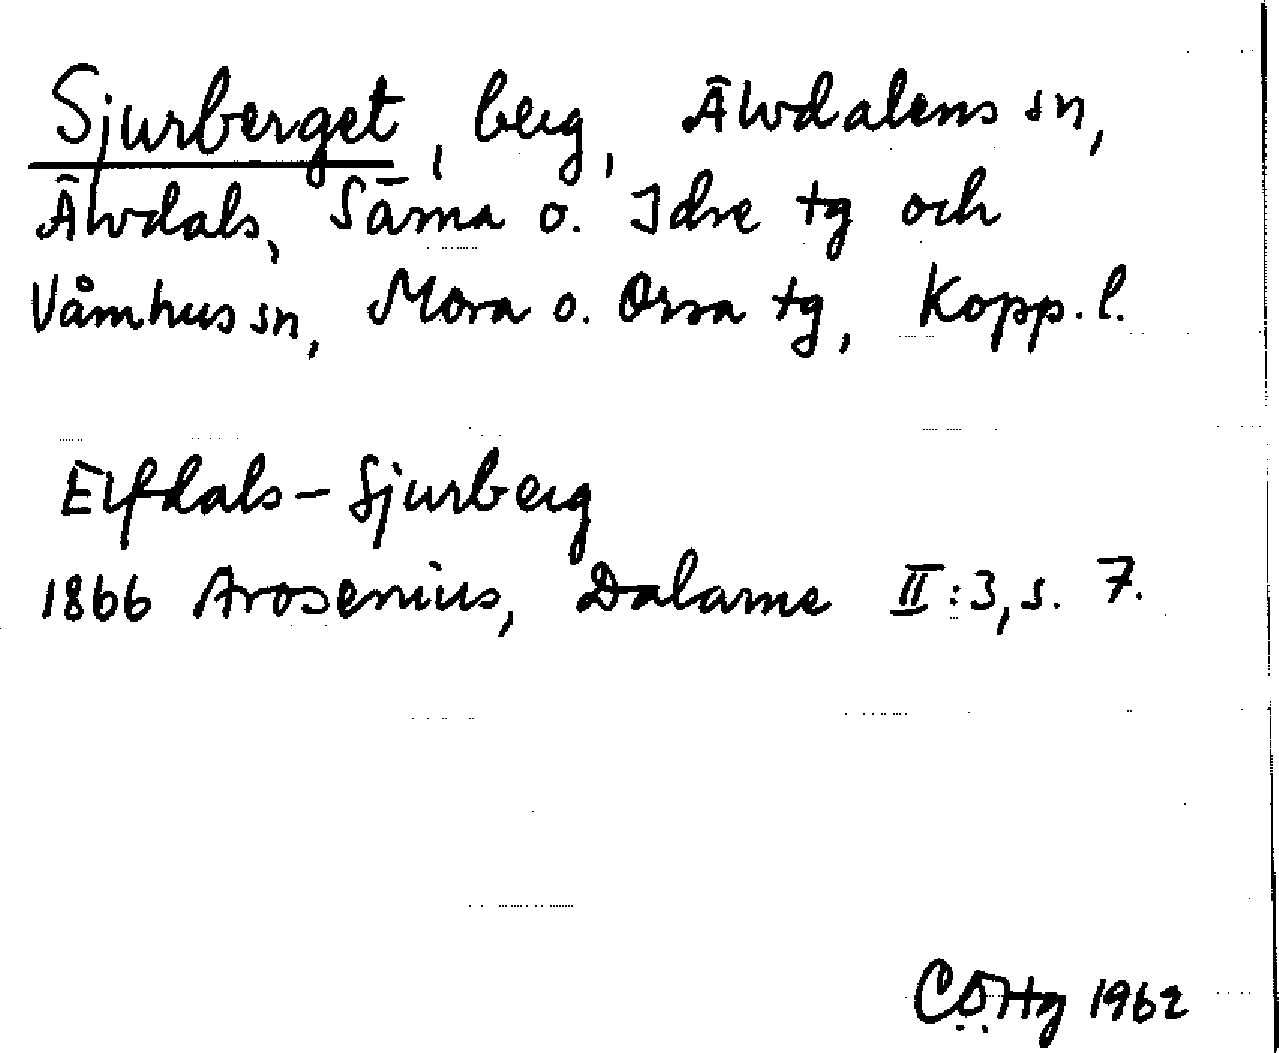 Sjurberget, berg, Älvdalens sn,
Älvdals, Särna o. Idre tg och
Våmhus sn, Mora o. Orsa tg, Kopp. l.
Elfdals-Sjurberg
1866 Arosenius, Dalarne II:3, s. 7.
1962